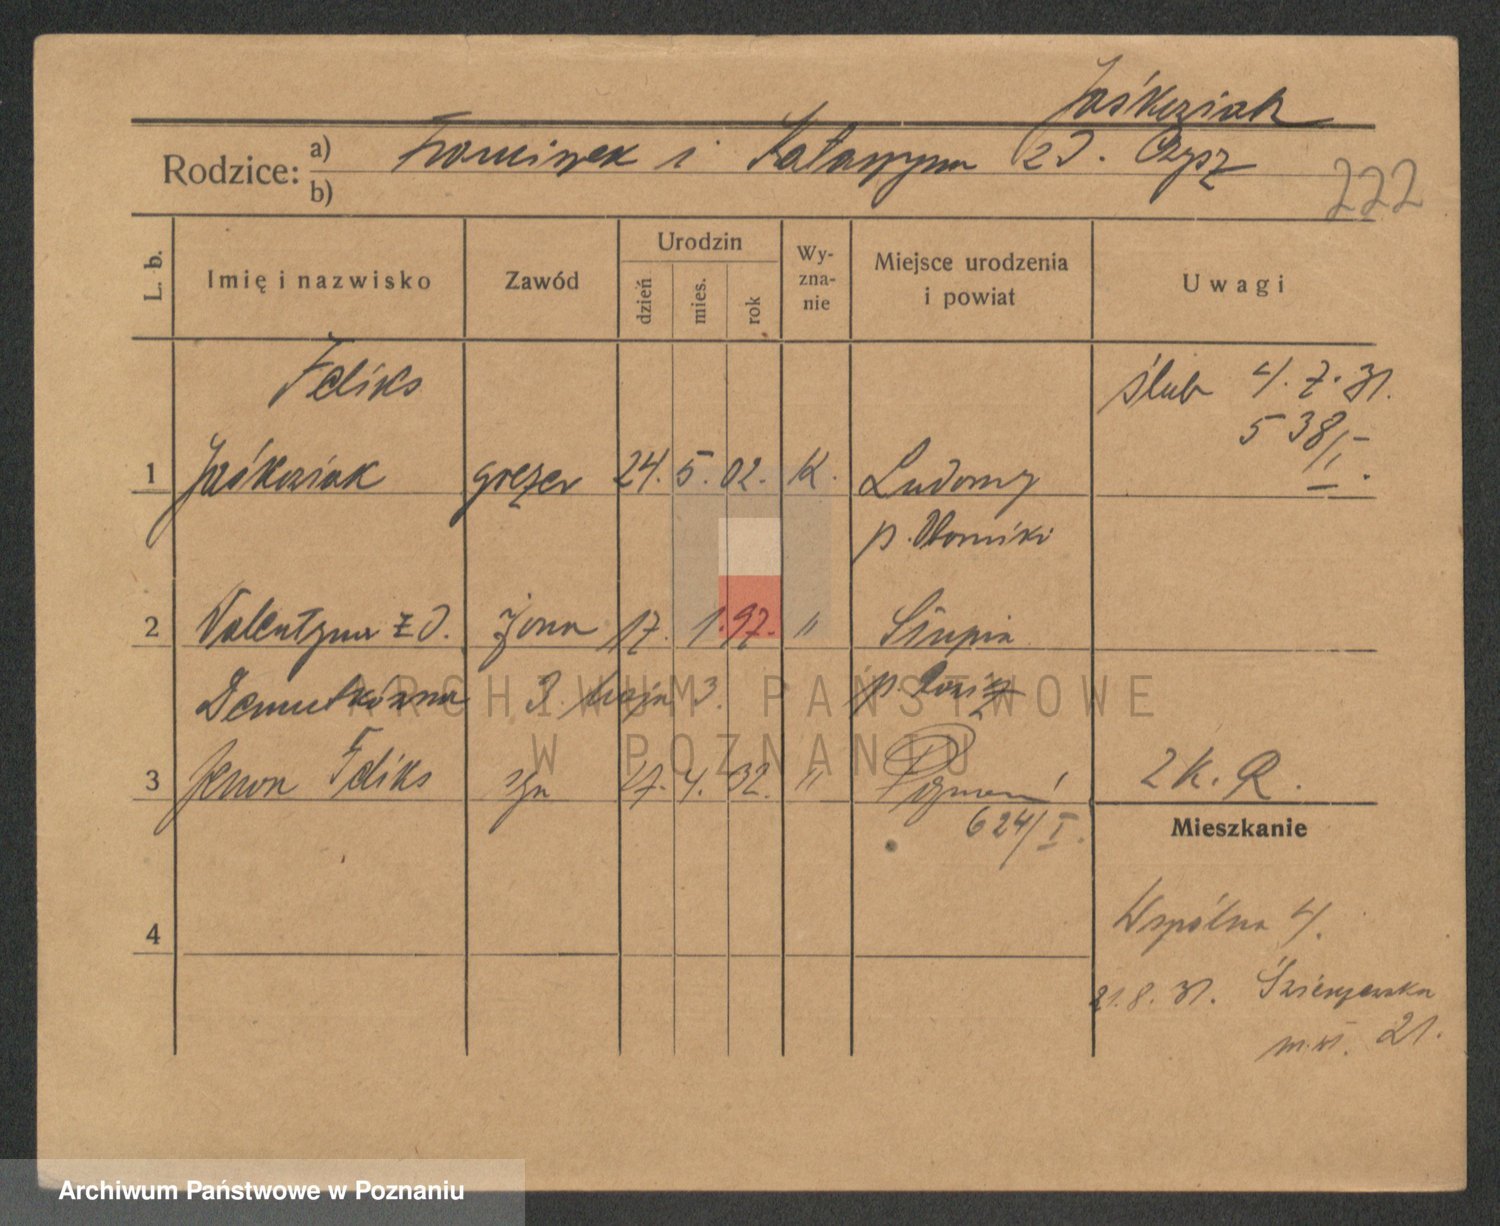 Jaśkowiak
Rodzice: a) Franciszek i Katarzyna z d.
b)
222
L. b. Imię i nazwisko Zawód Urodzin dzień mies. rok Wy-zna-nie Miejsce urodzenia i powiat Uwagi
Feliks ślub 4. 7. 31.
538/I
1 Jaśkowiak 24. 5. 02. K. Ludomy
p. Oborniki
2 Walentyna z d. żona 17. 1. 97. " Słupia
Demutkówna 3 Maja 3. p.
3 Zenon Feliks syn 17. 4. 32. " Poznań 2 K. R.
624/I.
Mieszkanie
4 Wspólna 4.
21. 8. 31.
m. 21.
ARCHIWUM PAŃSTWOWE
W POZNANIU
Archiwum Państwowe w Poznaniu